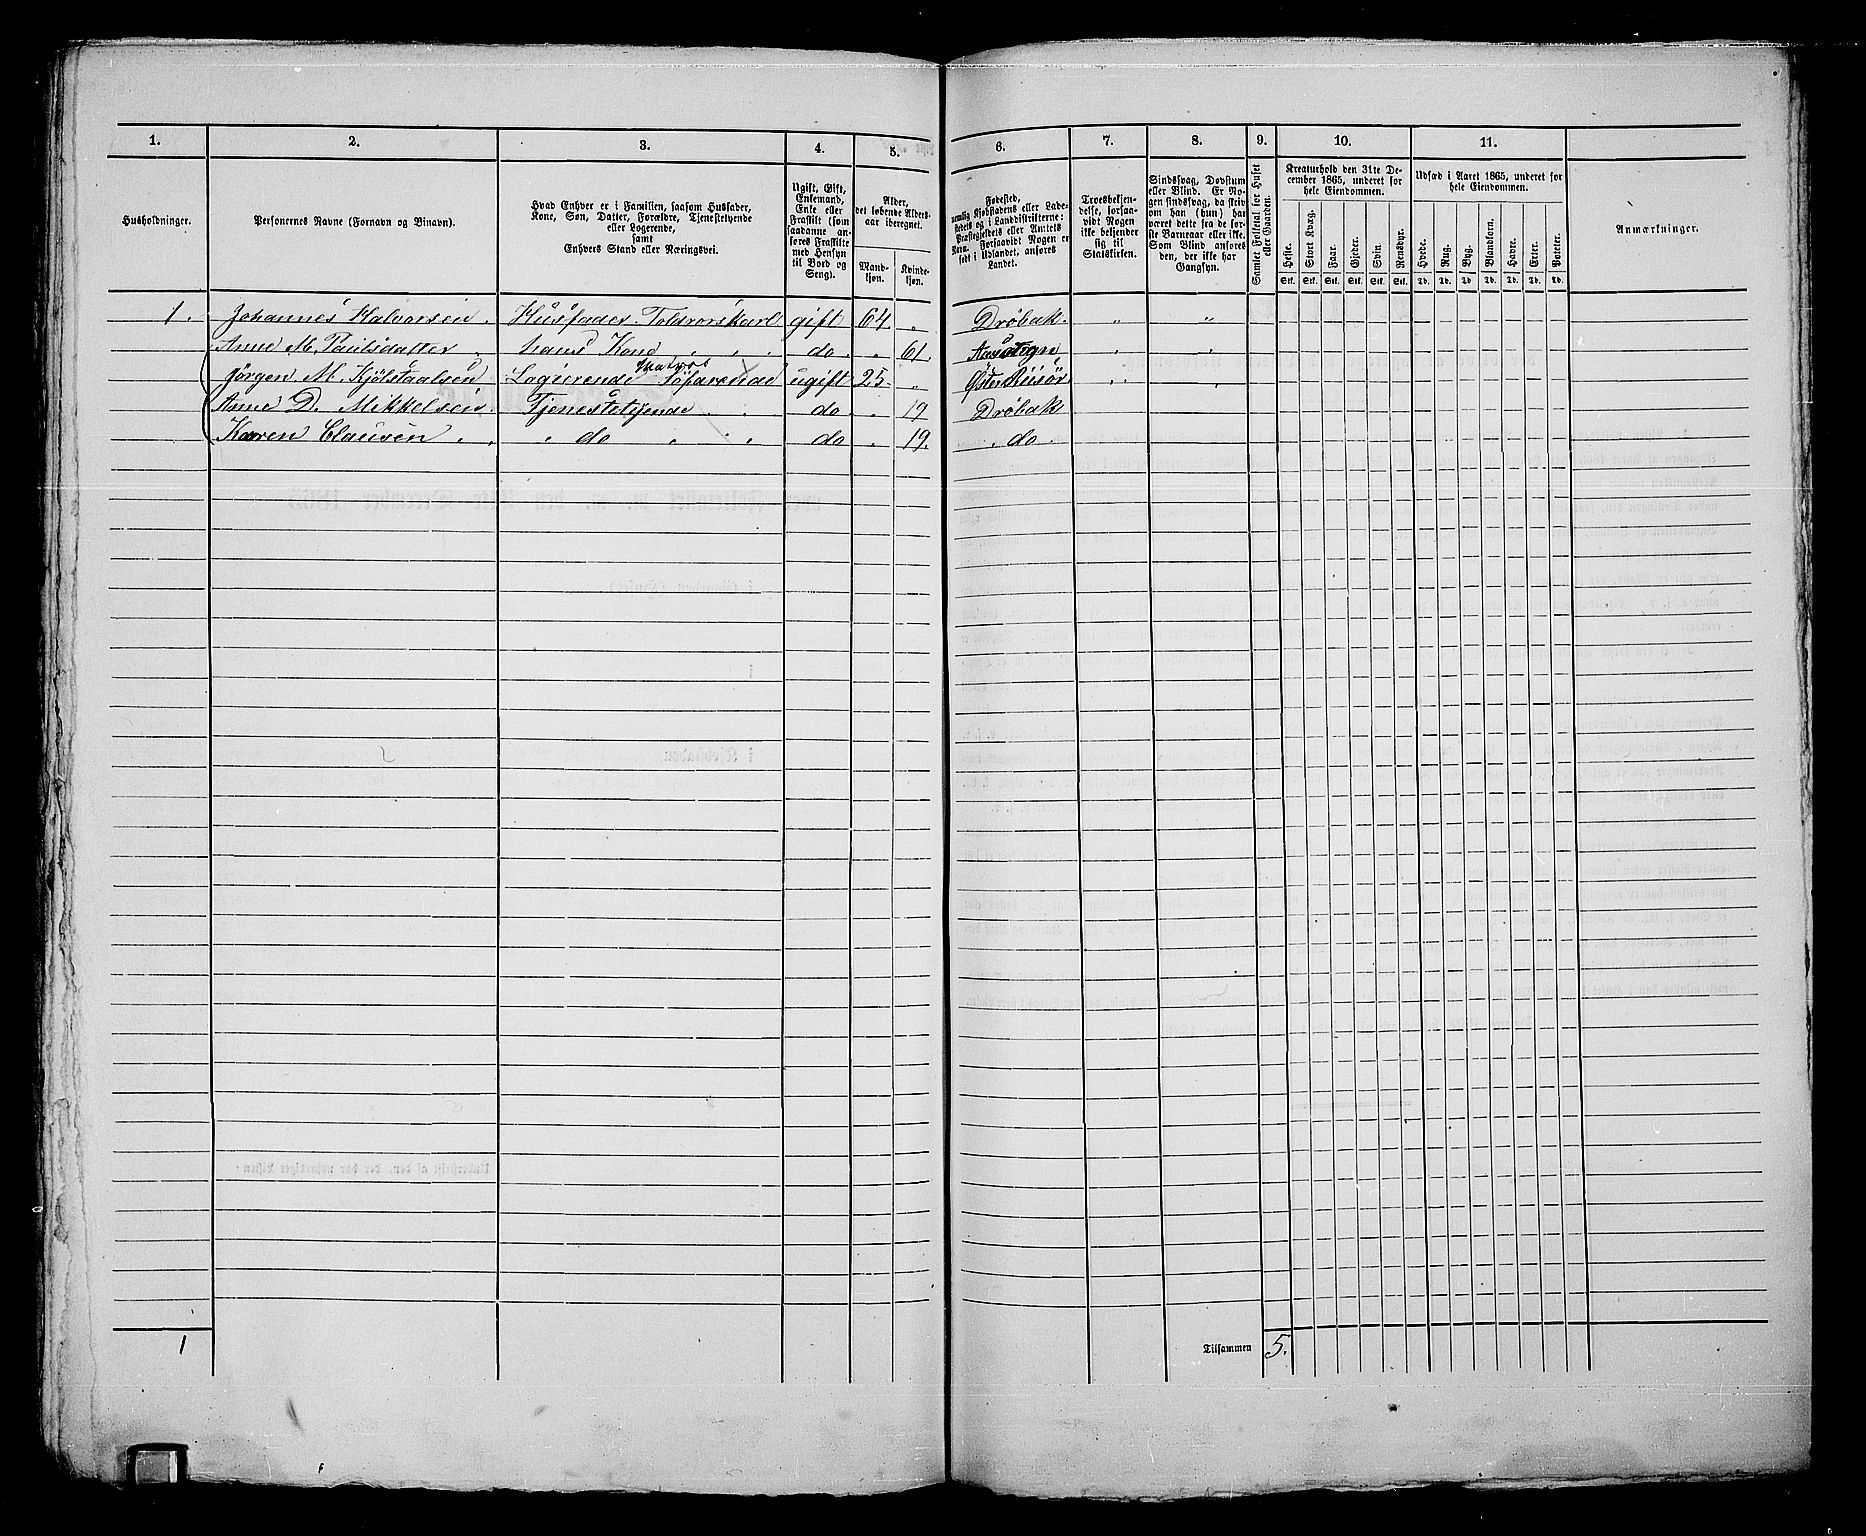 1. 2. 3. 4. 5. 6. 7. 8. 9. 10. 11.
Husholdninger.
Personernes Navne (Fornavn og Binavn).
Hvad Enhver er i Familien, saasom Husfader,
Kone, Søn, Datter, Forældre, Tjenestetyende
eller Logerende,
samt
Enhvers Stand eller Næringsvei.
Ugift, Gift,
Enkemand,
Enke eller
Fraskilt (som
saadanne an-
føres Fraskilte
med Hensyn
til Bord og
Seng).
Alder,
det løbende Alders-
aar iberegnet.
Mand-
kjøn.
Kvinde-
kjøn.
Fødested,
nemlig Kjøbstadens eller Lade-
stedets og i Landdistrikterne:
Præstegjeldets eller Amtets
Navn. Forsaavidt Nogen er
født i Udlandet, anføres
Landet.
Troesbekjen-
delse, forsaa-
vidt Nogen
ikke bekjender
sig til
Statskirken.
Sindssvag, Døvstum
eller Blind. Er No-
gen sindssvag, da skriv
om han (hun) har
været dette fra de før-
ste Barneaar eller ikke.
Som Blind anføres
den, der ikke har
Gangsyn.
Samlet Folketal for Huset
eller Gaarden.
Kreaturhold den 31te De-
cember 1865, underet for
hele Eiendommen.
Heste. Stort Kvæg. Faar. Gjeder. Svin. Rensdyr.
Stk. Stk. Stk. Stk. Stk. Stk.
Udsæd i Aaret 1865, underet for
hele Eiendommen.
Hvede. Rug. Byg. Blandkorn. Havre. Erter. Poteter.
Td. Td. Td. Td. Td. Td. Td.
Anmærkninger.
1. Johannes Halvorsen. Husfader. Toldrorskarl gift 64. " Drøbak. " "
Anne M. Paulsdatter hans Kone do. " 61. " "
Matros
Jørgen M. Kjølstaalsen Logierende Søfarende ugift 25. " Øster Riisør " "
Anne D. Mikkelsen. Tjenestetyende do " 19 Drøbak
Karen Clausen " " " do " " " do " 19. " do.
1
Tilsammen 5.